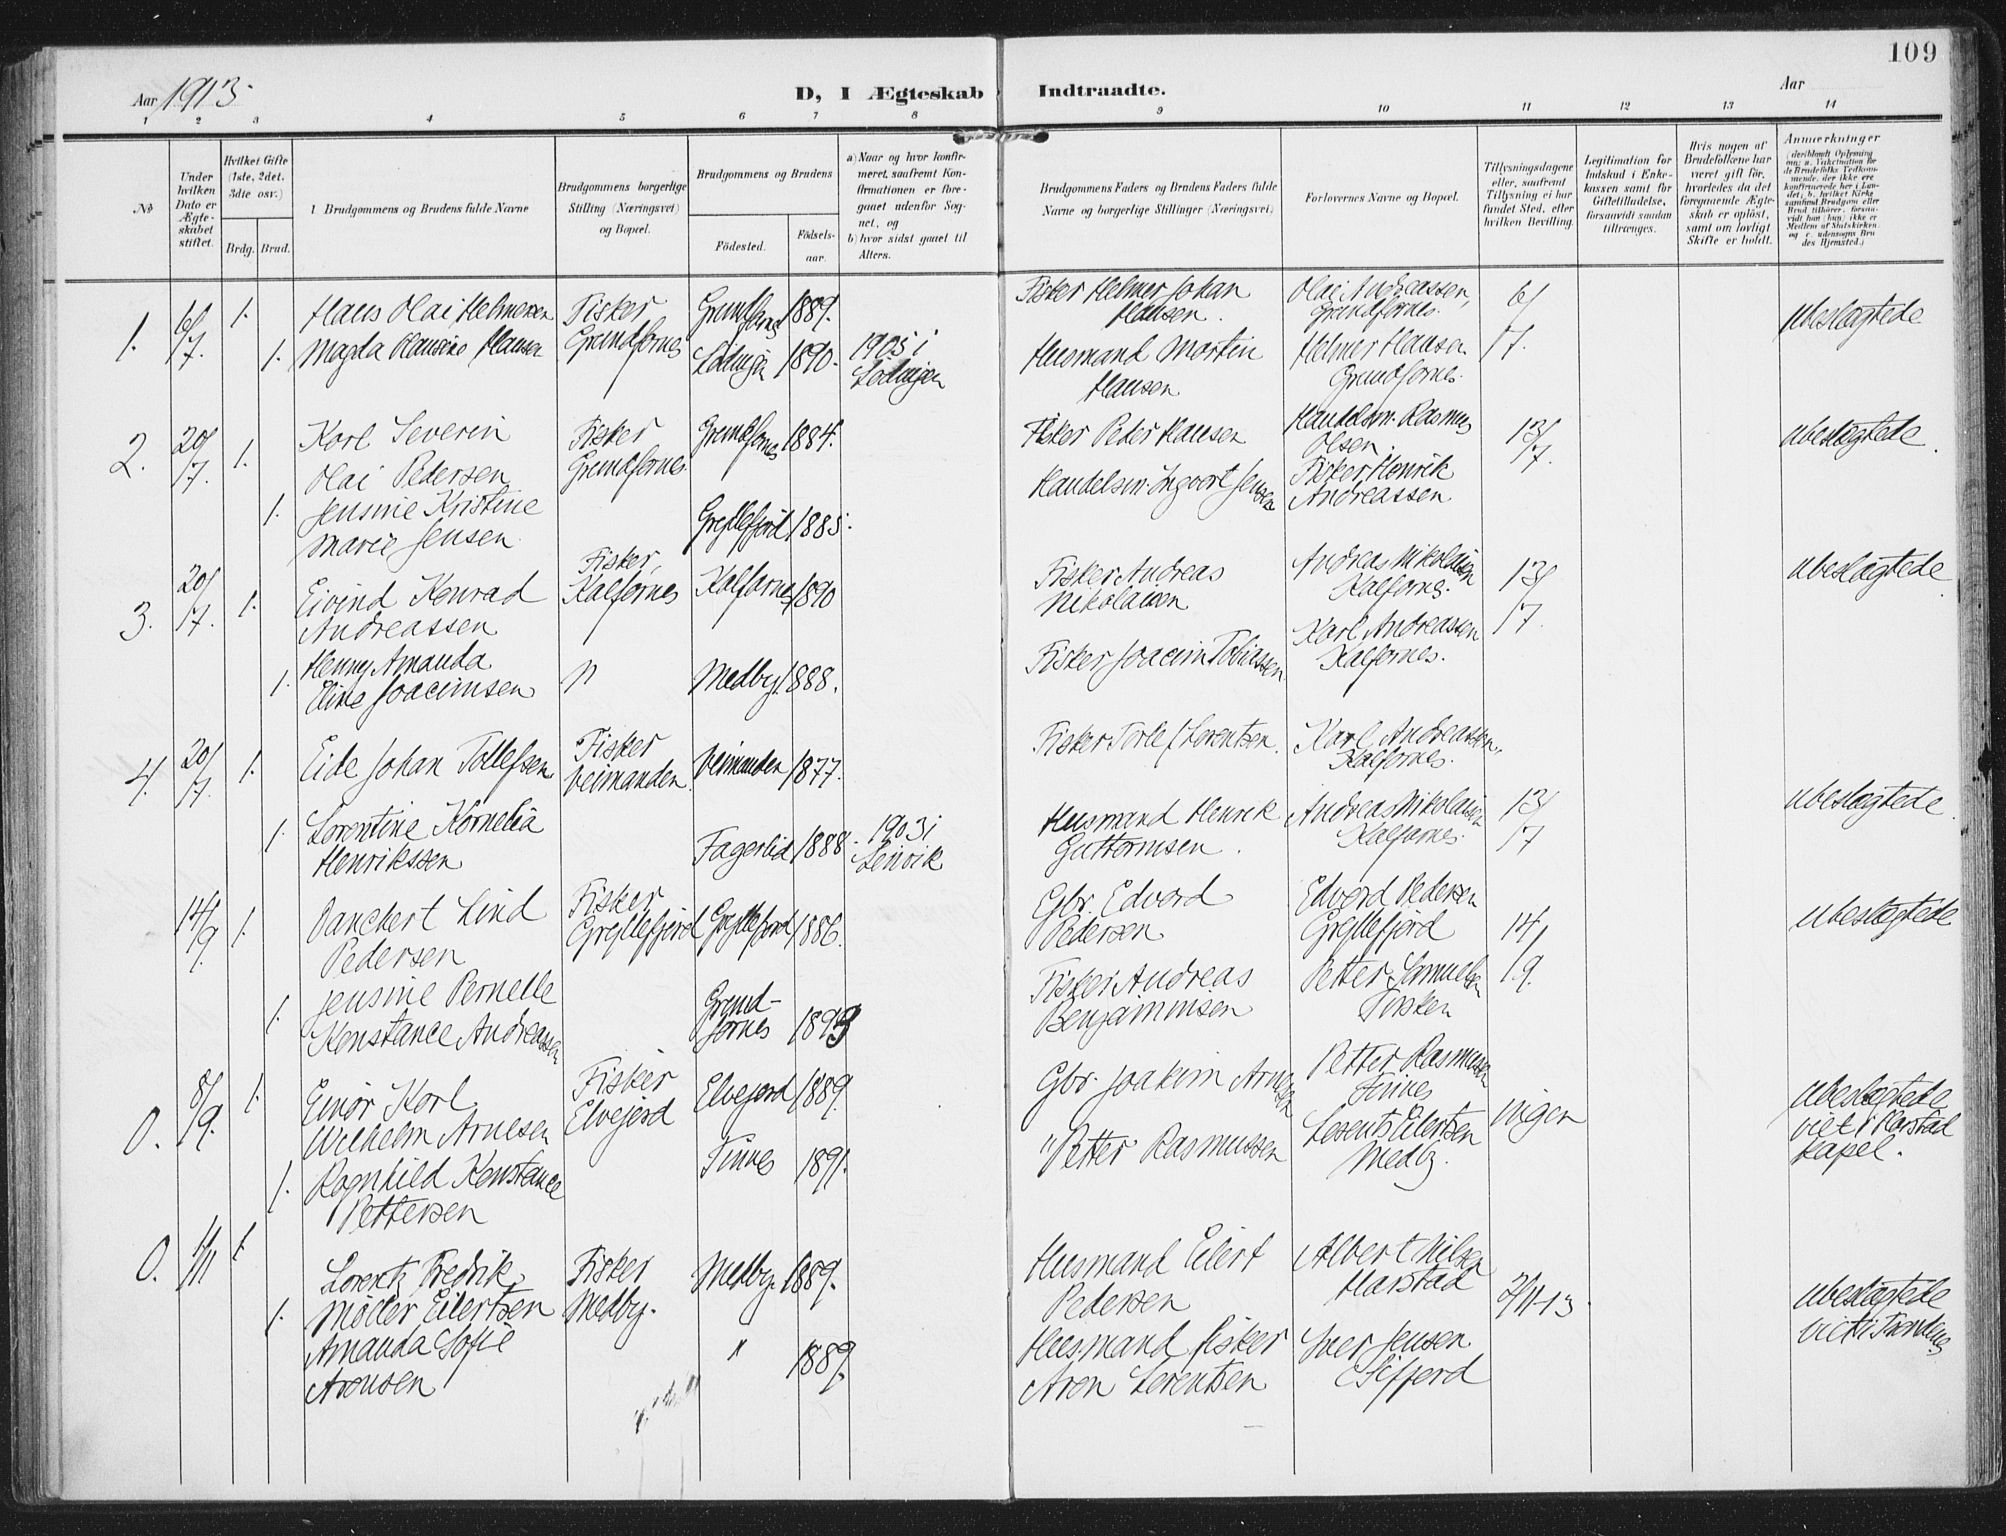 109
Aar 1913
D, I Ægteskab Indtraadte.
Aar
1 2 3 4 5 6 7 8 9 10 11 12 13 14
No
Under hvilken Dato er Ægteskabet stiftet.
Hvilket Gifte (1ste, 2det, 3die osv.)
Brdg. Brud.
Brudgommens og Brudens fulde Navne
Brudgommens borgerlige Stilling (Næringsvei) og Bopæl.
Brudgommens og Brudens
Fødested. Fødselsaar.
a) Naar og hvor konfirmeret, saafremt Konfirmationen er foregaaet udenfor Sognet, og
b) hvor sidst gaaet til Alters.
Brudgommens Faders og Brudens Faders fulde Navne og borgerlige Stillinger (Næringsvei)
Forlovernes Navne og Bopæl.
Tillysningsdagene eller, saafremt Tillysning ei har fundet Sted, efter hvilken Bevilling.
Legitimation for Indskud i Enkekassen samt for Giftetilladelse, forsaavidt saadan tiltrænges.
Hvis nogen af Brudefolkene har været gift før, hvorledes da det foregaaende Ægteskab er opløst, samt om lovligt Skifte er holdt.
Anmerkninger
1. 6/7. 1. Hans Olai Helmersen Fisker Grundfornes 1889. Fisker Helmer Johan Hansen. Olai Andreassen, Grundfornes. 6/7. ubeslægtede
Grundfornes
1. Magda Hansine Hansen Lødingen 1890. 1905 i Lødingen Husmand Morten Hansen Helmer Hansen Grundfornes.
2. 20/7. 1. Karl Severin Olai Pedersen Fisker Grundfornes. Grundfornes 1884. Fisker Peder Hansen Handelsm. Rasmus Olsen 13/7. ubeslægtede.
1. Jensine Kristine Marie Jensen Gryllefjord 1885. Handelsm. Ingvart Jensen Fisker Henrik Andreassen
3. 20/7. 1. Eivind Konrad Andreassen Fisker, Kalfornes Kalfornes 1890 Fisker Andreas Nikolaisen Andreas Nikolaisen Kalfornes. 13/7. ubeslægtede.
1. Henny Amanda Eline Joacimsen " Medby 1888. Fisker Joacim Tobiassen Karl Andreassen Kalfornes.
4. 20/7. 1. Eide Johan Tollefsen Fisker Veimanden Veimanden 1877. Fisker Torlef Lorentsen. Karl Andreassen, Kalfornes.
1. Lorentine Kornelia Henrikssen Fagerlid 1888. 1903 i Lenvik Husmand Henrik Guttormsen. Andreas Nikolaisen Kalfornes. 13/7 ubeslægtede.
14/9. 1. Danckert Lind Pedersen Fisker Gryllefjord Gryllefjord 1886. Gbr. Edvard Pedersen Edvard Pedersen Gryllefjord 14/9. ubeslægtede
1. Jensine Pernelle Konstance Andreassen Grundfornes 1893 Fisker Andreas Benjaminsen Petter Samuelsen Torsken
0. 8/9. 1. Einar Karl Wilhelm Arnesen Fisker Elvejord Elvejord 1889. Gbr. Joakim Arnesen Petter Rasmussen Finnes ingen ubeslægtede viet i Harstad kapel.
1. Ragnhild Konstance Pettersen Finnes 1891. " Petter Rasmussen Eilertsen Medby.
0. 1/11 1. Lorentz Fredrik Møller Eilertsen Fisker Medby. Medby 1889. Husmand Eilert Pedersen Albert Nilsen Harstad 2/11-13. ubeslægtede
1. Amanda Sofie Aronsen " 1889. Husmand fisker Aron Lorentsen Iver Jensen viet i Trondenes